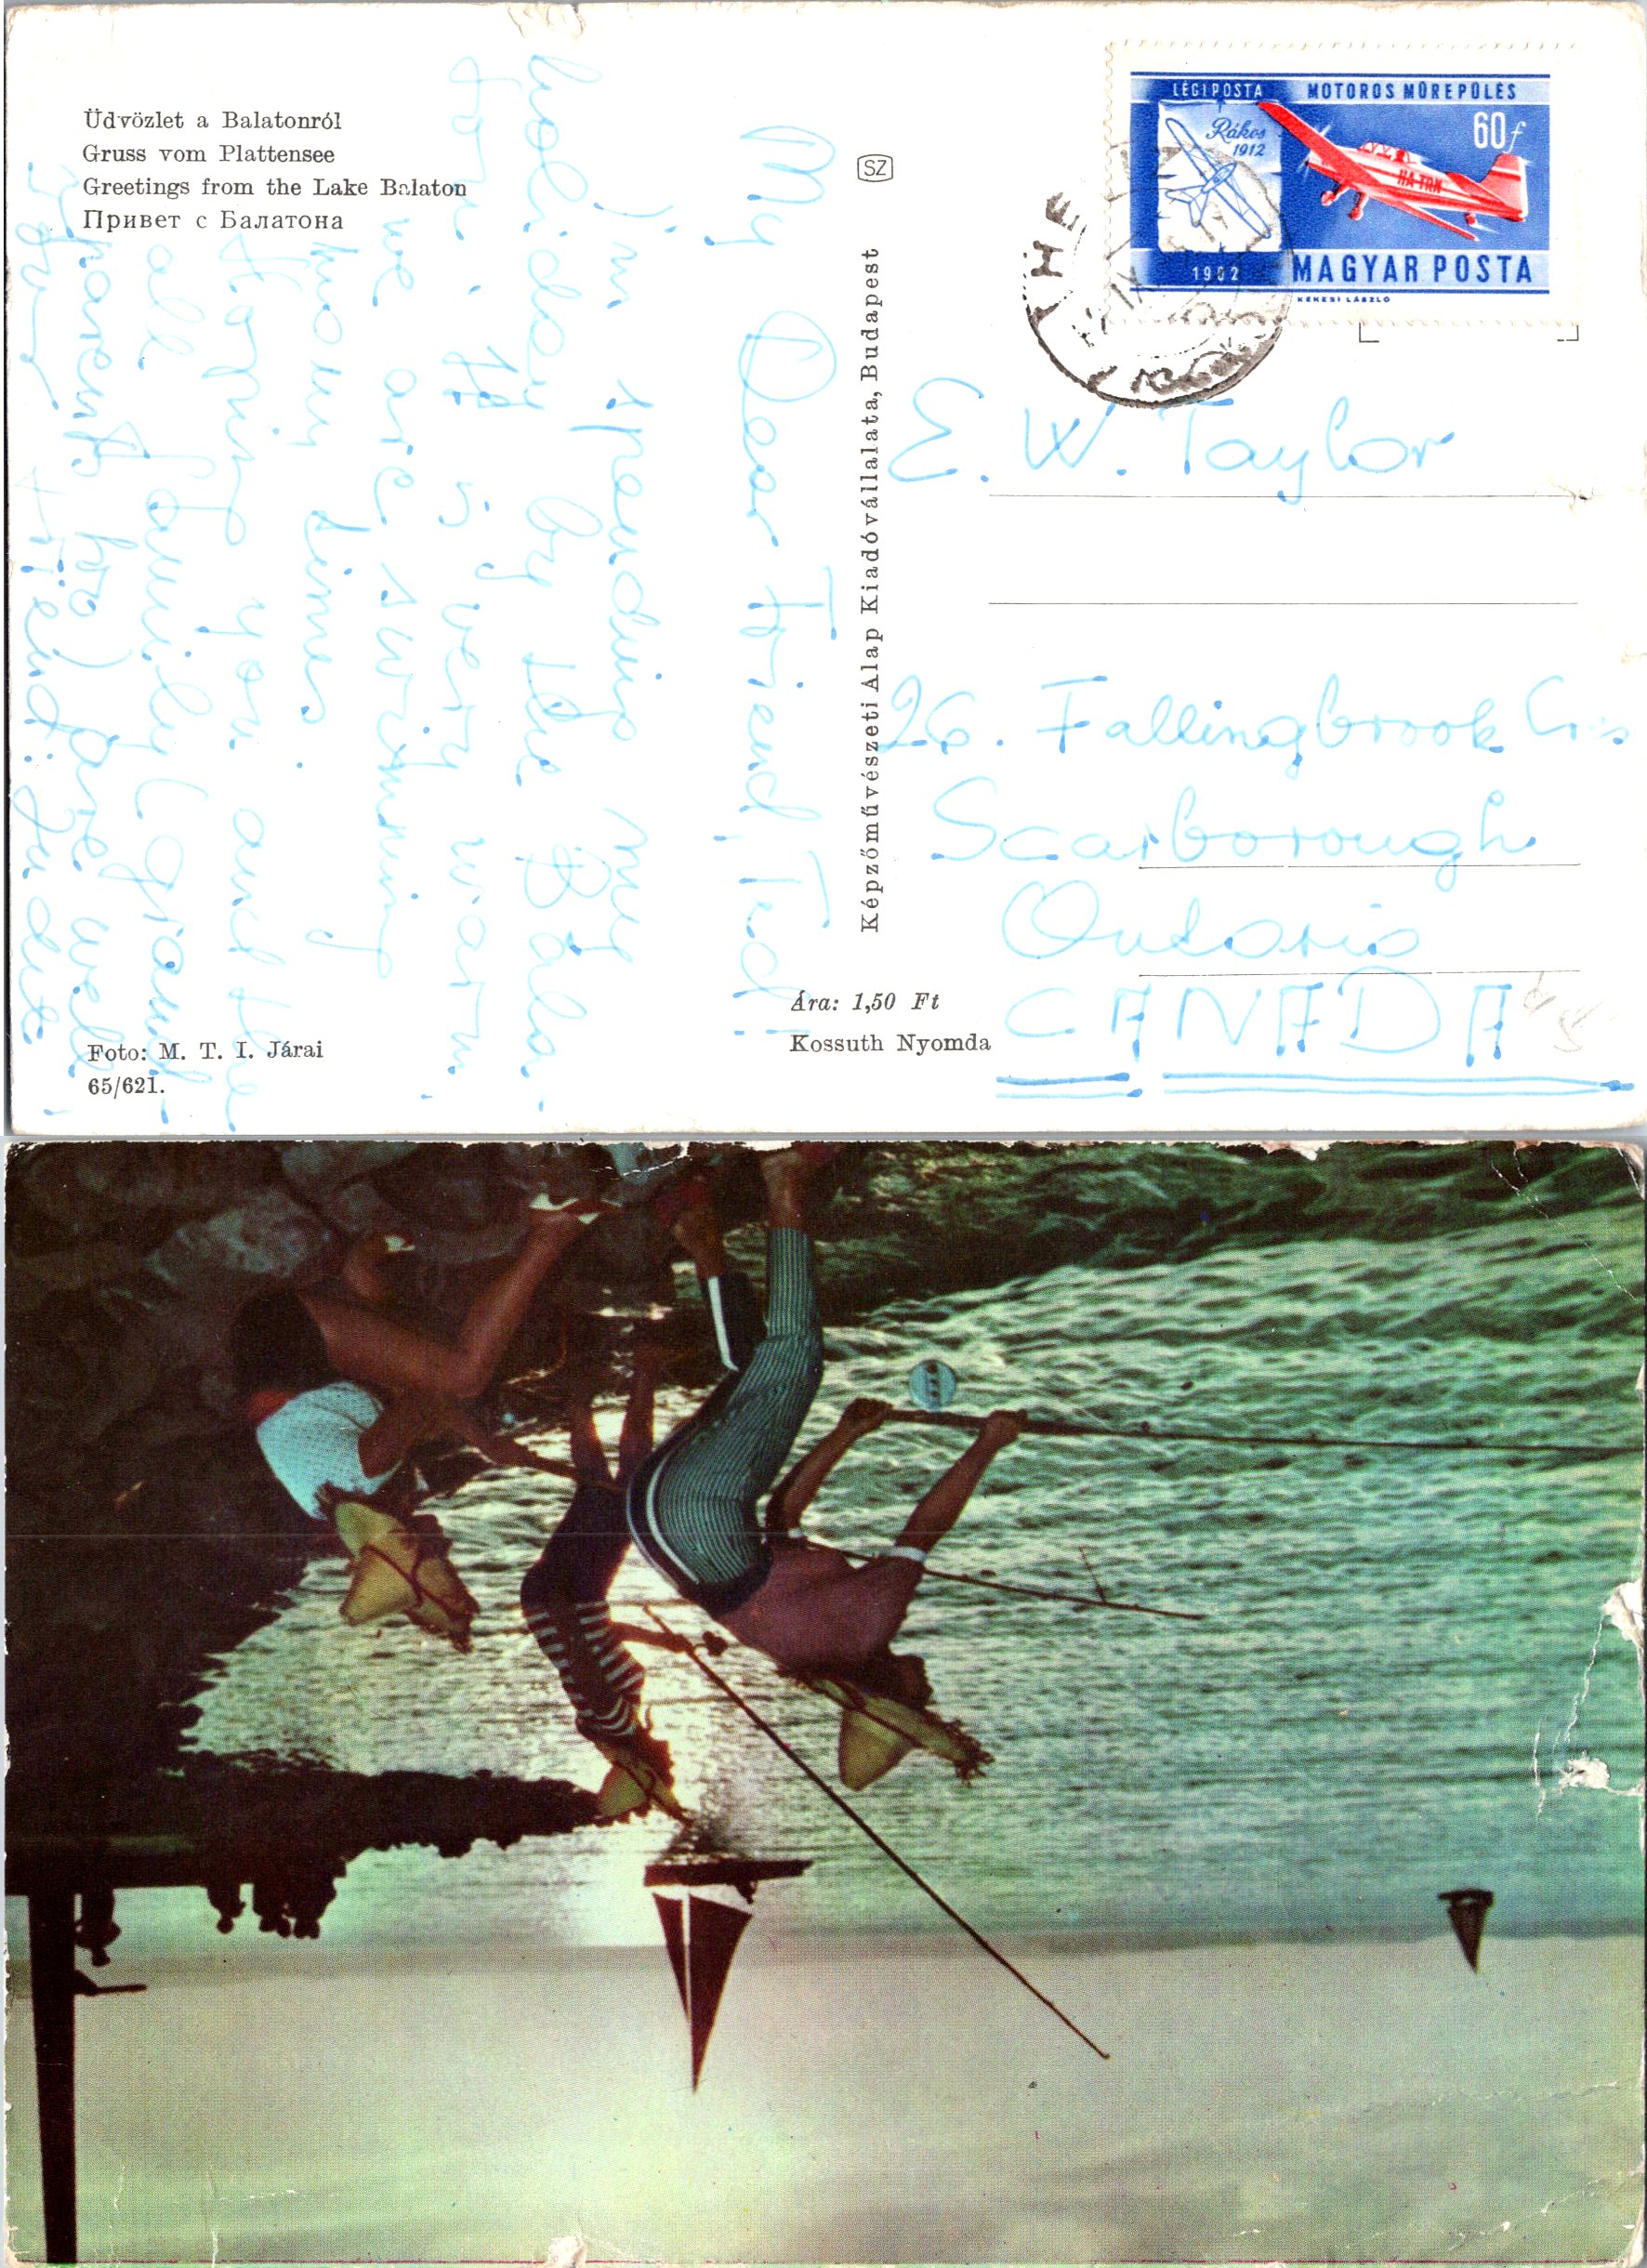 Üdvözlet a Balatonról
Gruss vom Plattensee
Greetings from the Lake Balaton
Привет с Балатона
My Dear Friend, Ted!
I'm spending my
holiday by the Bala-
ton. It is very warm
we are swimming
many times.
Hoping you and the
all family (grand
parents too) are well
your friend: Judit
SZ
Képzőművészeti Alap Kiadóvállalata, Budapest
LÉGIPOSTA
MOTOROS MŰREPÜLÉS
Rákos
1912
60f
HA-TRN
1962
MAGYAR POSTA
KÉKESI LÁSZLÓ
E. W. Taylor
26. Fallingbrook Cres
Scarborough
Ontario
CANADA
Ára: 1,50 Ft
Kossuth Nyomda
Foto: M. T. I. Járai
65/621.